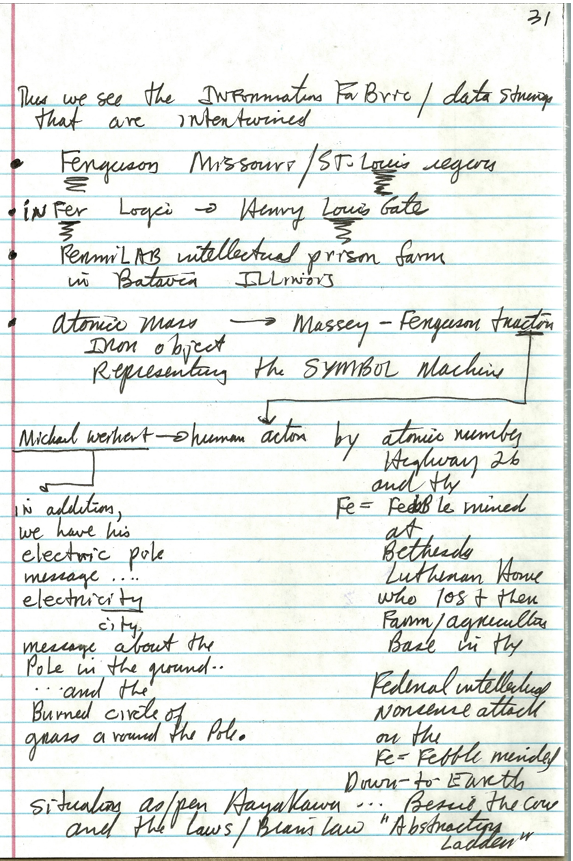 31
Thus we see the INFormation FaBric / data strings
that are intentwined
• Ferguson Missouri / ST. Louis region
• inFer Logic → Henry Louis Gate
• FermiLAB intellectual prison farm
in Batavia ILLinois
• atomic mass → Massey - Ferguson tracton
Iron object
Representing the SYMBOL Machine
Michael werhert → human acton by atomic number
Highway 26
and the
in addition,
we have his
electric pole
message ....
electricity
city
message about the
Pole in the ground..
... and the
Burned circle of
grass around the Pole.
Fe = FeebBle mined
at
Bethesda
Lutheran Home
who lost then
Farm/agricultur
Base in the
Federal intellectual
Nonsense attack
on the
Fe = Febble minded
Down-to Earth
situation as/per Hayakawa ... Bessie the cow
and the Laws / Brains law "Abstraction
Ladder"